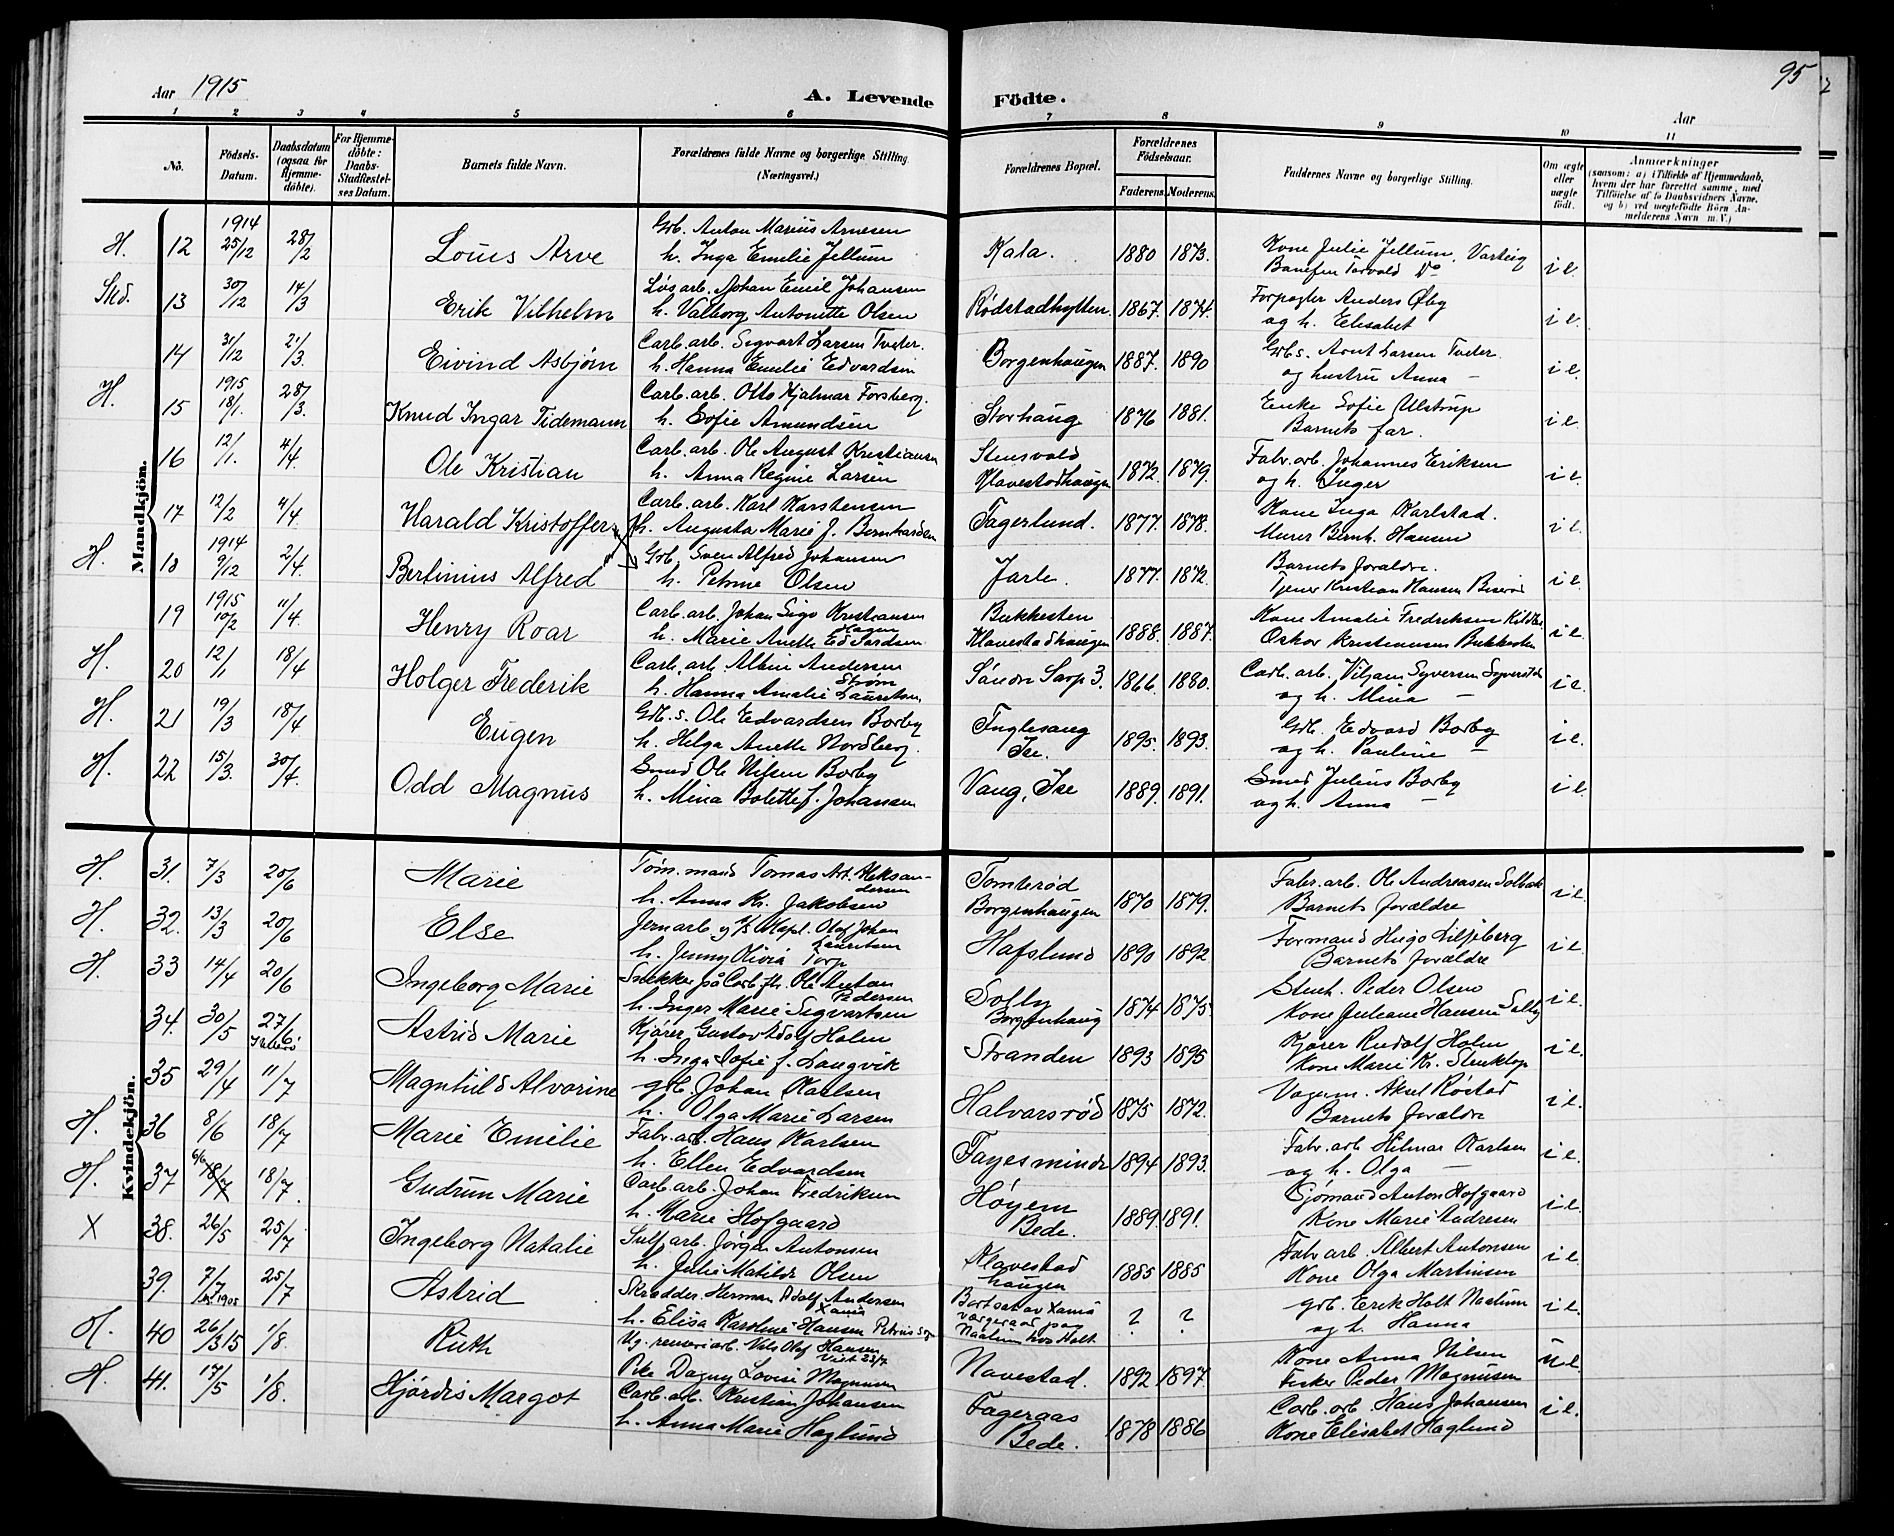 Aar 1915
A. Levende Födte.
95
Aar
1 2 3 4 5 6 7 8 9 10 11
No.
Födsels-Datum.
Daabsdatum (ogsaa for Hjemmedöbte).
For Hjemmedöbte: Daabs-Stadfestelses Datum.
Barnets fulde Navn.
Forældrenes fulde Navne og borgerlige Stilling. (Næringsvei.)
Forældrenes Bopæl.
Forældrenes Födselsaar.
Faderens. Moderens.
Faddernes Navne og borgerlige Stilling.
Om ægte eller uægte födt.
Anmærkninger
(saasom: a) i Tilfælde af Hjemmedaab, hvem der har forrettet samme, med Tilföielse af to Daabsvidners Navne, og b) ved uegtefödte Börn Anmelderens Navn m. V.)
Mandkjön.
H. 12 1914 25/12 28/2 Louis Arve Grb. Anton Marius Arnesen Kala. 1880 1873. Kone Julie Jellum, Varteig i e.
h. Inga Emilie Jellum
13 30/12 14/3 Erik Vilhelm Løsarb. Johan Emil Johansen Rødstadhytten. 1867. 1874. Forpagter Anders Øby i e.
h. Valborg Antonette Olsen og h. Elisabet
14 31/12 21/3. Eivind Asbjørn Carb. arb. Sigvart Larsen Tveter. Borgenhaugen 1887. 1890 Grbs. Arnt Larsen Tveter. i e.
h. Hanna Emilie Edvardsen og hustru Anna –
H. 15 1915 18/1. 28/3. Knud Ingar Tidemann Carb. arb. Otto Hjalmar Forsberg. Storhaug 1876 1881. Enke Sofie Ulstrup i e.
h. Sofie Amundsen Barnets far.
16 12/1. 4/4. Ole Kristian Carb. arb. Ole August Kristiansen Stensvold 1872. 1879. Fabr. arb. Johannes Eriksen i e.
h. Anna Regine Larsen Klavestadhaugen og h. Inger
17 12/2 4/4. Harald Kristoffer Carb. arb. Karl Karstensen Fagerlund. 1877. 1878. Kone Inga Karlstad. i e.
h. Augusta Marie J. Bernhardsen Murer Bernh. Hansen
H. 18 1914 9/12 2/4. Bertinius Alfred Grb. Sven Alfred Johansen Jarle. 1877. 1872. Barnets forældre. i e.
h. Petrine Olsen Tjener Kristian Hansen
19 1915 10/2 11/4. Henry Roar Carb. arb. Johan Sigv. Kristiansen Bukkesten 1888. 1887. Kone Amalie Fredriksen i e.
h. Marie Anette Klavestadhaugen Oskar Kristiansen Bukkesten
H. 20 12/1 18/4 Holger Frederik Carb. arb. Albin Andersen Strøm Söndr Sarp 3. 1866. 1880. Carb. arb. Viljam Syversen i e.
h. Hanna Amalie Lauritsen og h. Mina –
H. 21 19/3 18/4 Eugen Grb. s. Ole Edvardsen Borby Fuglesang 1895. 1893. Grb. Edvard Borby i e.
h. Helga Anette Nordberg. Ise. og h. Pauline –
H. 22 15/3. 30/4. Odd Magnus Smed Ole Nilsen Borby Vang, Ise 1889. 1891. Smed Julius Borby i e.
h. Mina Bolette f. Johansen og h. Anna –
Kvindekjön.
H. 31. 7/3 20/6 Marie Töm. mand Tomas Aleksandersen Tomterød 1870 1879. Fabr. arb. Ole Andreasen Solbak i e.
h. Anna Kr. Jakobsen Borgenhaugen Barnets forældre
H. 32. 13/3 20/6 Else Jernarb. Olaf Johan Lauritsen Hafslund 1890 1892 Formand Hugo Liljeberg i e.
h. Jenny Olivia Torp Barnets forældre
H. 33 14/4 20/6 Ingeborg Marie Snekker på Carb. Ole Anton Pedersen Solly 1874 1875 Stenh. Peder Olsen i e.
h. Inger Marie Sigvartsen Borgenhaug Kone Juliane Hansen Solly
34. 30/5 27/6 Astrid Marie Kjører Gustav Adolf Holm Stranden 1893 1895 Kjører Rudolf Holm i e.
h. Inga Sofie f. Langvik Kone Marie Kr.
35 29/4 11/7 Magnhild Alvorine grb. Johan Karlsen Halvarsrød 1875 1872. Vognm. Aksel Røstad i e.
h. Olga Marie Larsen Barnets forældre
H. 36 8/6 18/7 Marie Emilie Fabr. arb. Hans Karlsen Fagesminde 1894 1893. Fabr. arb Hilmar Karlsen i e.
h. Ellen Edvardsen og h. Olga –
H. 37 6/6 18/7 18/7. Gudrun Marie Carb. arb. Johan Fredriksen Høyem 1889 1891. Sjømand Anton Hofgaard i e.
h. Marie Hofgaard Bede. Kone Marie Andresen
X 38. 26/5 25/7 Ingeborg Natalie Sulf. arb. Jørgen Antonsen Klavestad 1885 1885 Fabr arb. Albert Antonsen i e.
h. Julie Matilde Olsen haugen Kone Olga Martinsen
39. 7/7 1905 25/7 Astrid Skrædder Herman Adolf Andersen Xania Bortsat av Xania ? ? grb. Erik Holt Naalum i e.
h. Elisa Karoline Hansen vergeraad paa Naalum hos Holt. og h. Hanna
H. 40 26/3 15 1/8. Ruth Ug. Nils Olaf Hansen Navestad. 1892 1897. Kone Anna Nilsen u e.
Pike Dagny Lovise Magnusen Peder Magnusen
H. 41. 17/5 1/8. Hjördis Margot Carb. arb. Kristian Johansen Fageraas 1878 1886 Carb. arb Hans Johansen i e.
h. Anna Marie Haglund Bede. Kone Elisabet Haglund